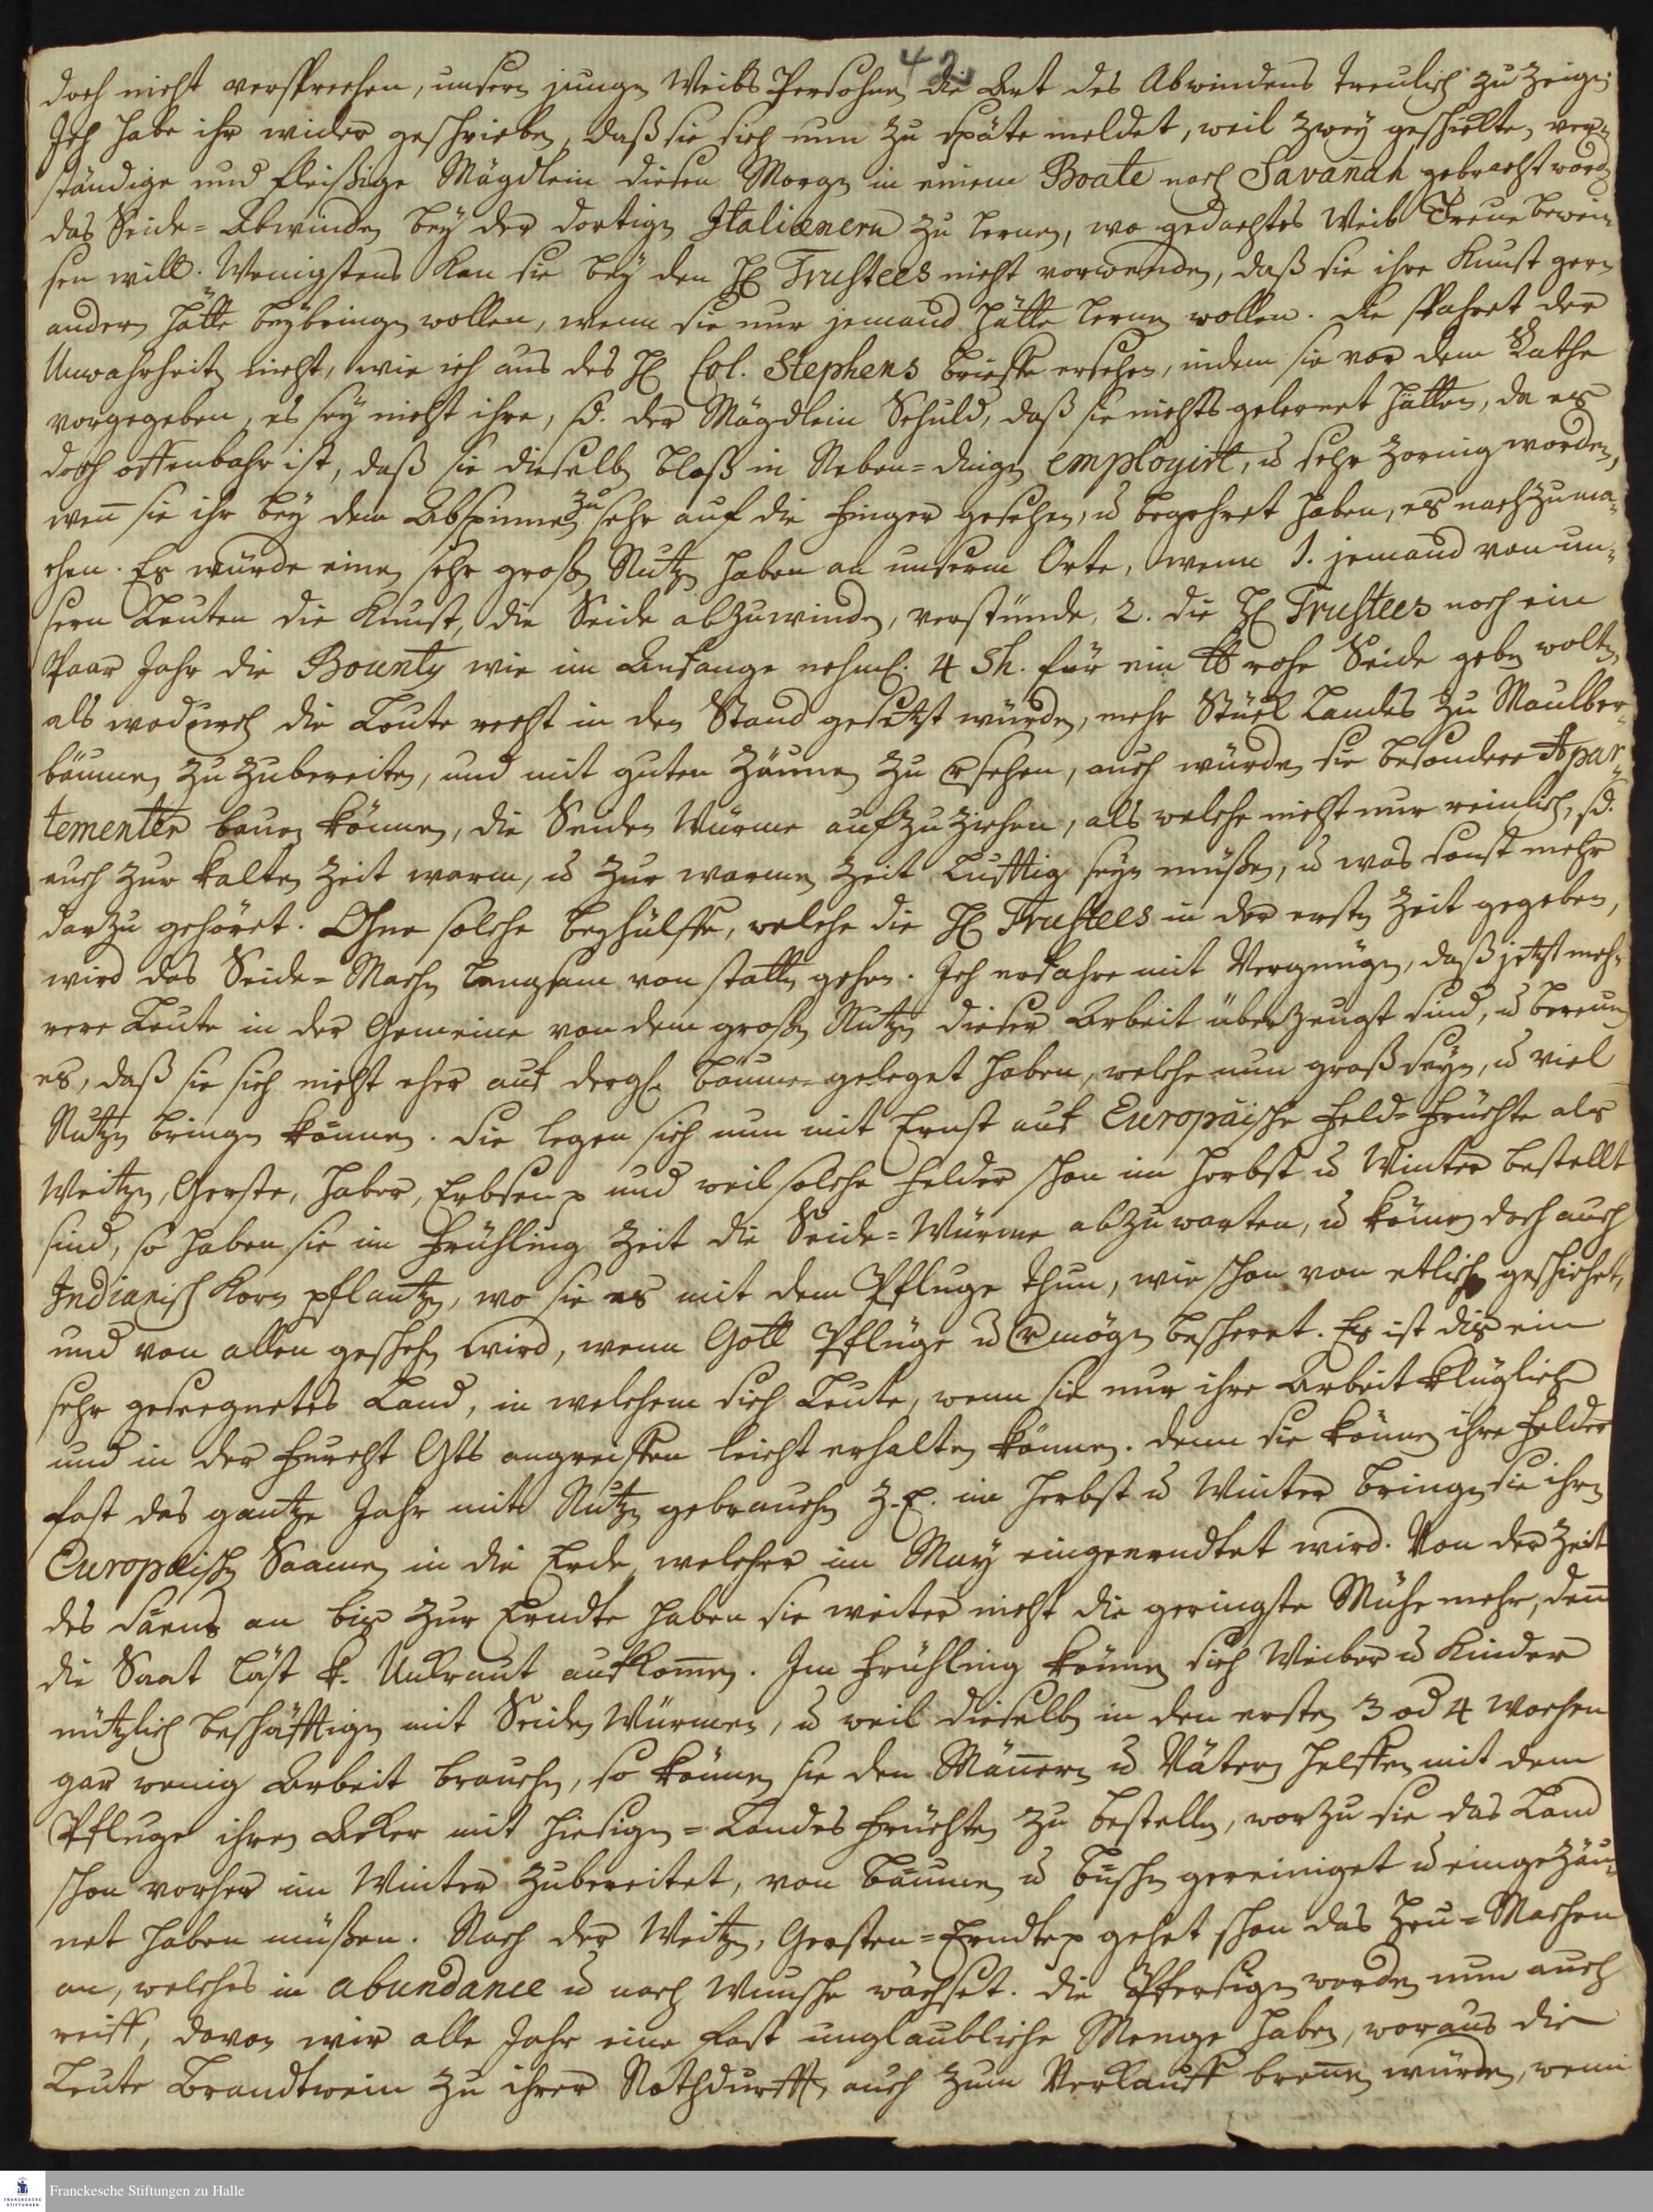 42
doch nicht versprechen, unsern jungen Weibs Persohnen die Art des Abwindens treulich zu zeigen.
Ich habe ihr wider geschrieben, daß sie sich nun zu späte meldet, weil zwey geschickte, ver-
ständige und fleißige Mägdlein diesen Morgen in einem Boate nach Savañah gebracht worden
das Seide-Abwinden bey der dortigen Italiænern zu lernen, wo gedachtes Weib Treue bewei-
sen will. Wenigstens kan sie bey den H. Trustees nicht vorwenden, daß sie ihre Kunst gern
andern hätte beybringen wollen, wenn sie nur jemand hätte lernen wollen. Sie spahret der
Unwahrheiten nicht, wie ich aus des H. Col. Stephens Brieffe ersehen, indem sie vor dem Rathe
vorgegeben, es sey nicht ihre, sd. der Mägdlein Schuld, daß sie nichts gelernet hätten, da es
doch offenbahr ist, daß sie dieselben bloß in Neben-dingen employirt, u sehr zornig worden,
weñ sie ihr bey dem Abspinnen zu sehr auf die Finger gesehen, u begehret haben, es nachzuma-
chen. Es würde einen sehr großen Nutzen haben an unserm Orte, wenn 1. jemand von un-
sern Leuten die Kunst, die Seide abzuwinden, verstünde, 2. die H. Trustees noch ein
Paar Jahr die Bounty wie im Anfange nehml. 4 Sh. für ein ℔ rohe Seide geben wolten
als wodurch die Leute recht in den Stand gesetzt würden, mehr Stück Landes zu Maulber-
bäumen zu zubereiten, und mit guten Zäunen zu versehen, auch würden sie besondere Apar-
tementer bauen können, die Seiden Würme aufzuziehen, als welche nicht nur reinlich, sd.
auch zur kalten Zeit warm, u zur warmen Zeit lufftig seyn müßen, u was sonst mehr
darzu gehöret. Ohne solche Beyhülffe, welche die H. Trustees in der ersten Zeit gegeben,
wird das Seide-Machen langsam von statten gehen. Ich erfahre mit Vergnügen, daß jetzt meh-
rere Leute in der Gemeine von dem großen Nutzen dieser Arbeit überzeugt sind, u bereuen
es, daß sie sich nicht eher auf dergl. Bäume geleget haben, welche nun groß seyn, u viel
Nutzen bringen können. Sie legen sich nun mit Ernst auf Europäische Feld-Früchte als
Weitzen, Gerste, Haber, Erbsen p und weil solche Felder schon im Herbst u Winter bestellt
sind, so haben sie im Frühling Zeit die Seide-Würme abzuwarten, u können doch auch
Indianisch Korn pflantzen, wo sie es mit dem Pfluge thun, wie schon von etlichen geschiehet,
und von allen geschehen wird, wenn Gott Pflüge u Vermögen bescheret. Es ist dis ein
sehr geseegnetes Land, in welchem sich Leute, wenn sie nur ihre Arbeit klüglich
und in der Furcht Gts angreiffen leicht erhalten können. Denn sie können ihre Felder
fast das gantze Jahr mit Nutzen gebrauchen z. E. im Herbst u Winter bringen sie ihren
Europæischen Saamen in die Erde, welcher im May eingeerndtet wird. Von der Zeit
des Säens an bis zur Erndte haben sie weiter nicht die geringste Mühe mehr, deñ
die Saat läst k. Unkraut aufkom̄en. Im Frühling können sich Weiber u Kinder
nützlich beschäfftigen mit Seiden Würmen, u weil dieselben in den ersten 3 od 4 Wochen
gar wenig Arbeit brauchen, so können sie den Mäñern u Vätern helffen mit dem
Pfluge ihren Acker mit hiesigen-Landes Früchten zu bestellen, worzu sie das Land
schon vorher im Winter zubereitet, von Bäumen u Büschen gereiniget u eingezäu-
net haben müßen. Nach der Weitzen, Gersten-Erndte p gehet schon das Heu-Machen
an, welches in abundance u nach Wunsche wächset. Die Pfersigen werden nun auch
reiff, davon wir alle Jahr eine fast unglaubliche Menge haben, woraus die
Leute Brandtwein zu ihrer Nothdurfft, auch zum Verkauff breñen würden, wenn
Franckesche Stiftungen zu Halle
FRANCKESCHE STIFTUNGEN